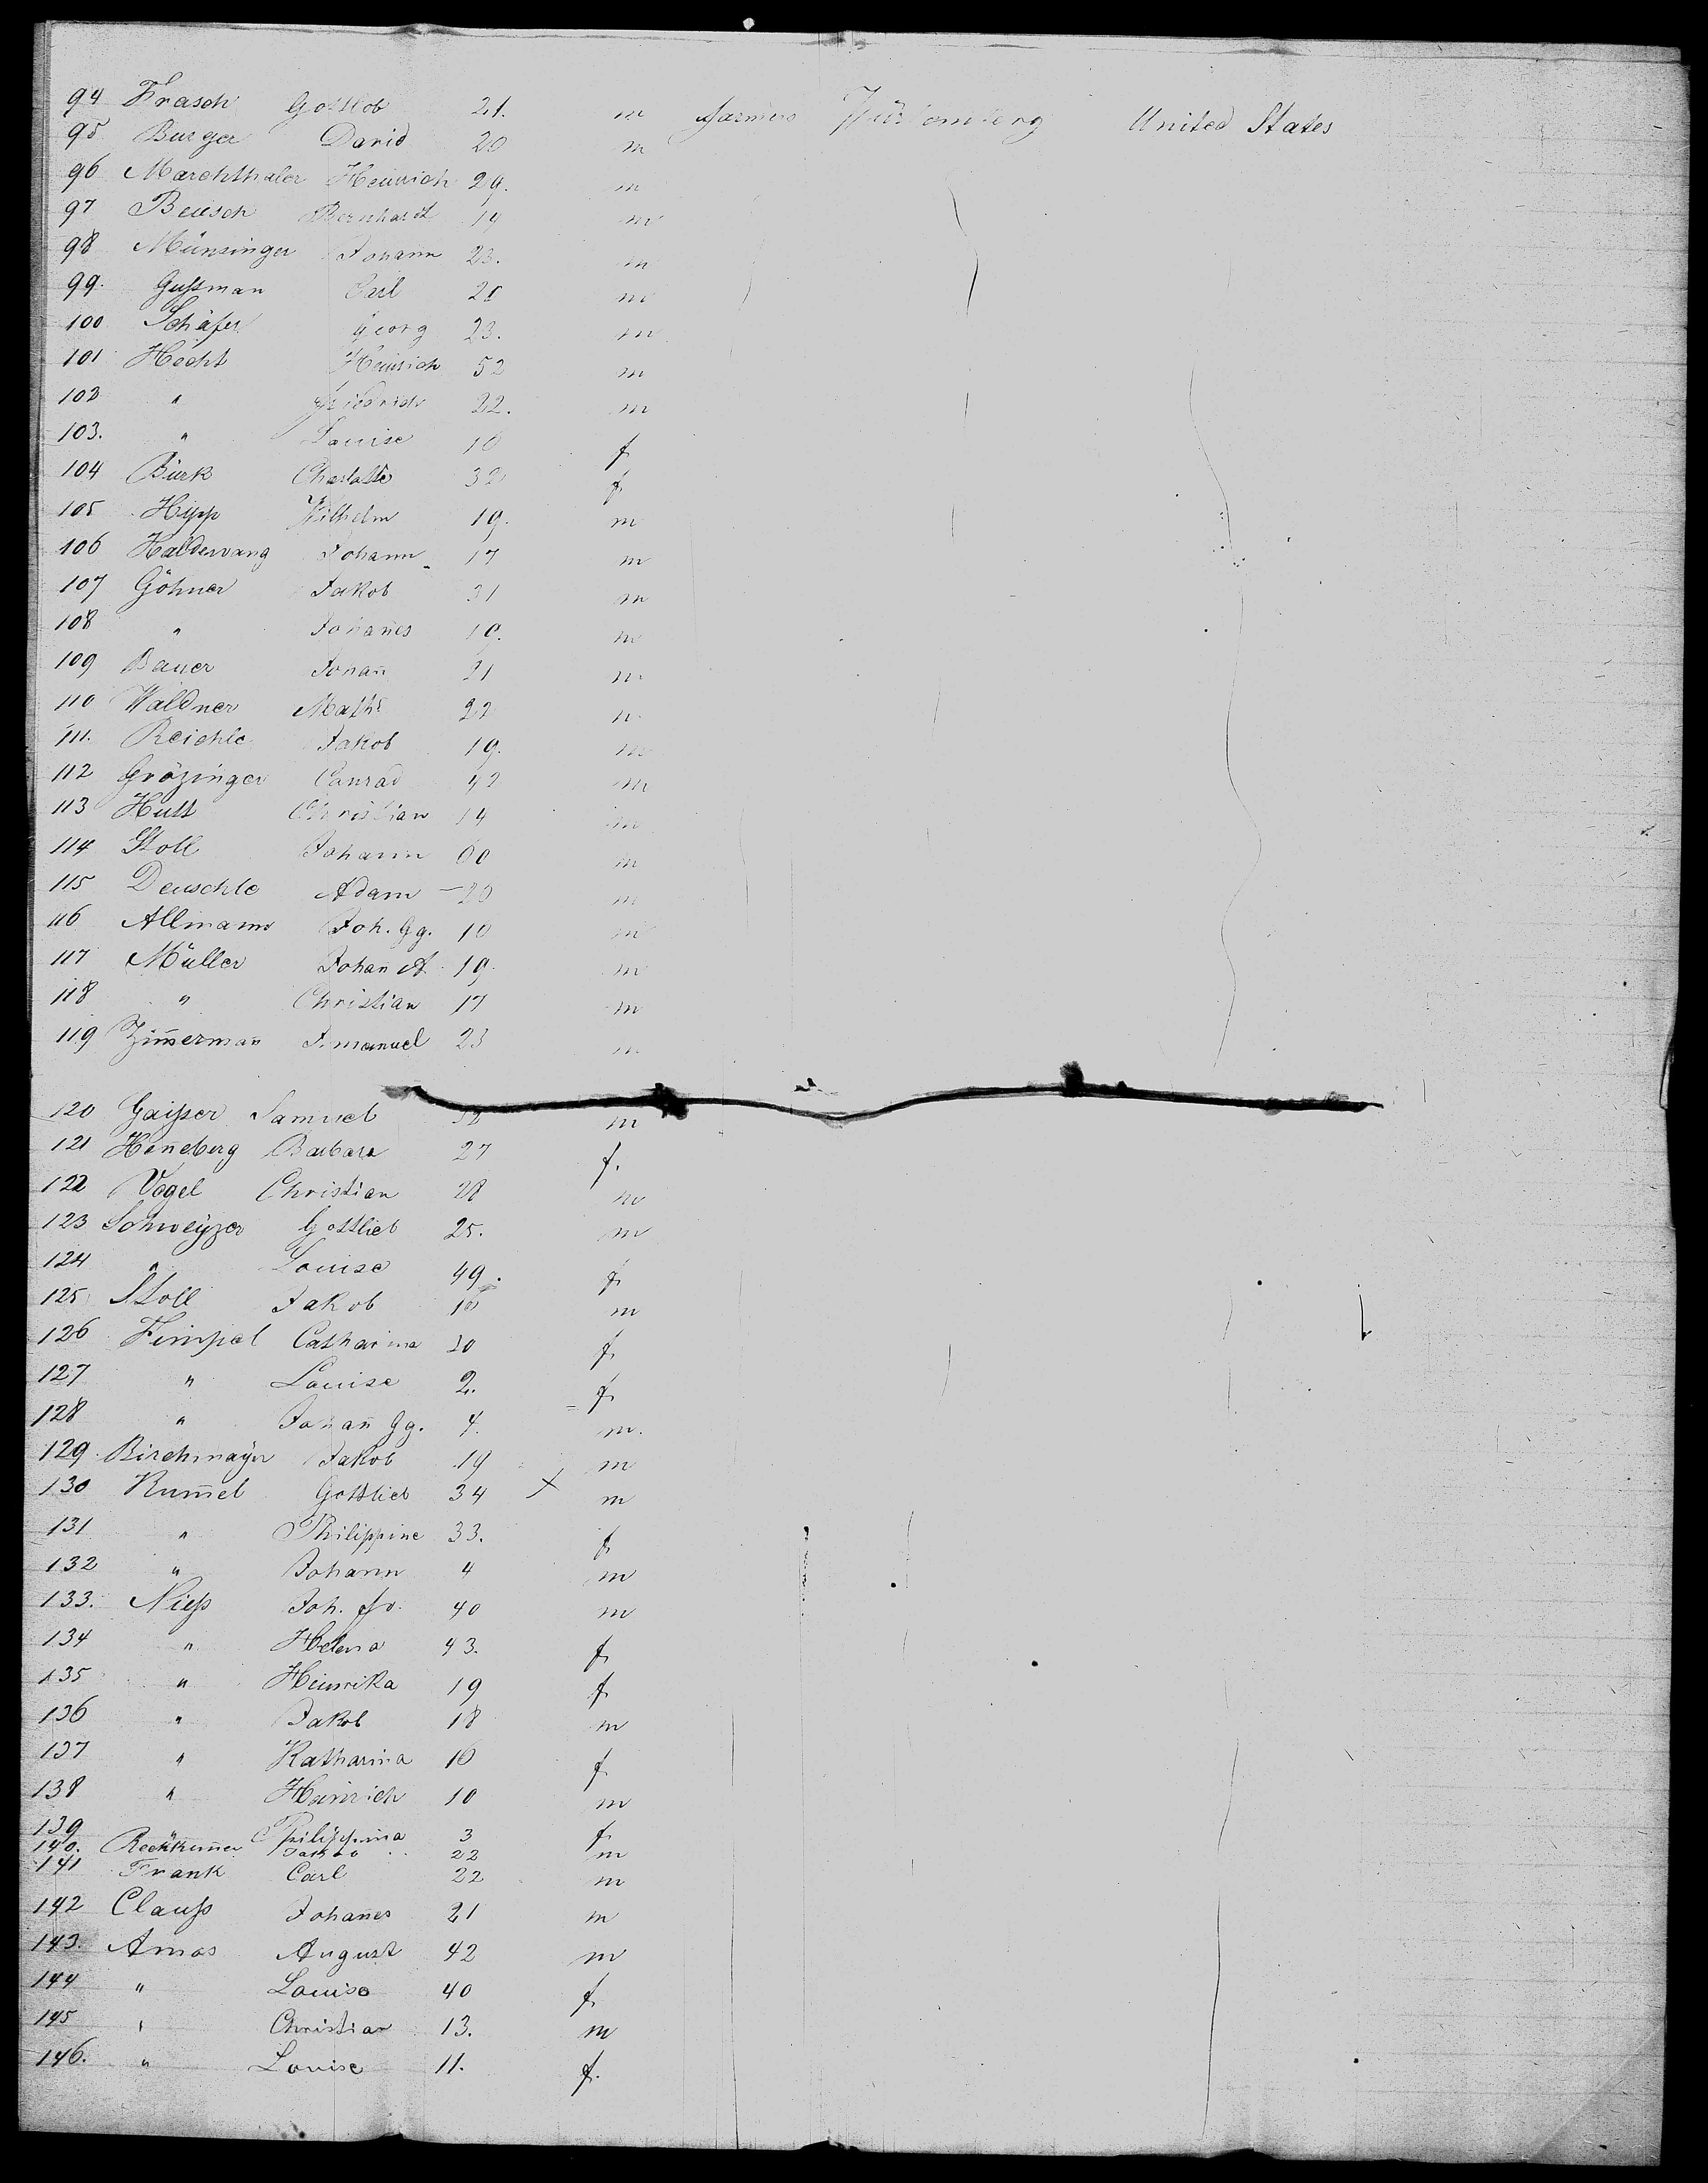 94 Frasch Gottlob 21. m Farmers Würtemberg United States
95 Burger David 20 m
96 Marchthaler Heinrich 29. m
97 Beusch Bernhardt 14 m
98 Münsinger Johann 23. m
99. Gußman Carl m
100 Schäfer Georg 23. m
101 Hecht Heinrich 52 m
102 " Friedrich 22. m
103. " Louise 10 f
104 Bürk Charlotte f
105 Hipp Wilhelm 19. m
106 Haldenwang Johann 17 m
107 Göhner Jakob 31 m
108 " Johan̄es m
109 Bauer Johan̄ 21 m
110 Waldner Maths 22 m
111. Reichle Jakob 19. m
112 Grözinger Conrad 42 m
113 Hutt Christian 14 m
114 Stoll Johann m
115 Deuschle Adam 20 m
116 Allmann Joh. Gg. 10 m
117 Müller Johan̄ A. 19. m
118 " Christian 17 m
119 Zim̄erman̄ Imanuel 23 m
120 Gaißer Samuel m
121 Hen̄eberg Barbara 27 f.
122 Vogel Christian 28 m
123 Schweÿzer Gottlieb 25. m
124 " Louise 49. f
125 Stoll Jakob m
126 Fimpel Catharina f
127 " Louise 2. f
128 " Johan̄ Gg. 4. m.
129. Birchmaÿer Jakob 19 m
130 Kum̄el Gottlieb 34 x m
131 " Philippine 33. f
132 " Johann 4 m
133. Nieß Joh. Fr. 40 m
134 " Helena 43. f
135 " Heinrika 19 f
136 " Jakob 18 m
137 " Katharina 16 f
138 " Heinrich 10 m
139 " Philippina 3 f
140. Jakob 22 m
141 Frank Carl 22 m
142 Clauß Johan̄es 21 m
143. Amos August 42 m
144 " Louise 40 f
145 " Christian 13. m
146. " Louise 11. f.